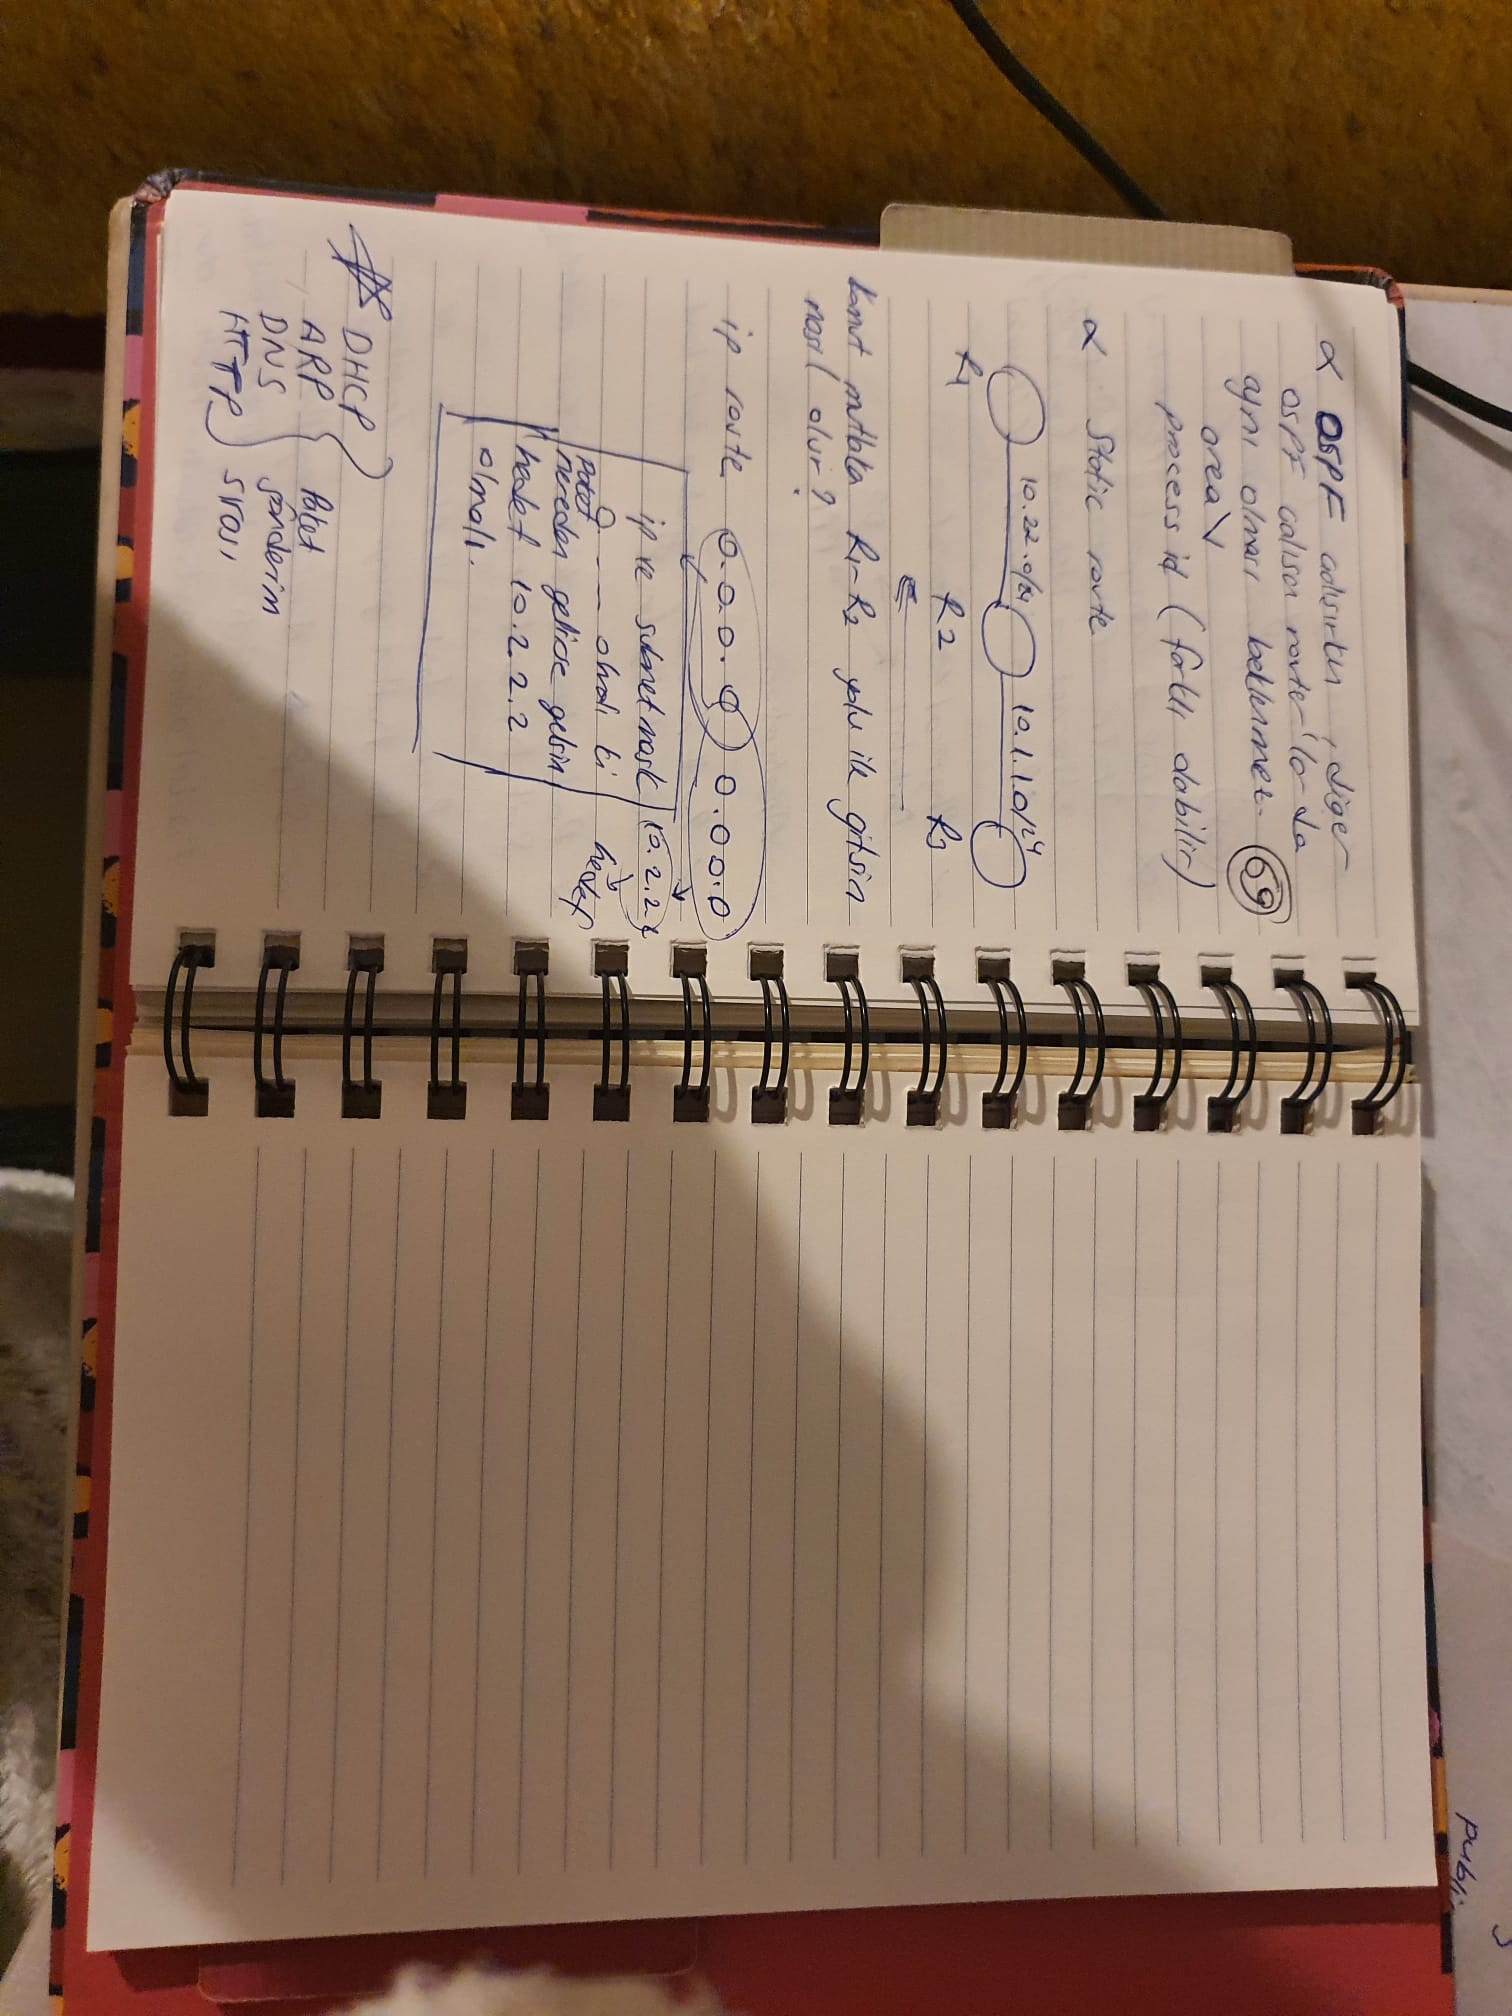 publi
α OSPF calısırken , diger
OSPF calısan router'lar da
aynı olması beklenmez. 69
area \/
process id (farklı olabilir)
α Static route
10.22.0/24 10.1.1.0/24
R1 R2 R3
Komut mutlaka R1-R2 yolu ile gitsin
nasıl olur?
ip route 0.0.0.0 0.0.0.0
ip ve subnet mask 10.2.2.2
0. __ olmalı ki hedef
Paket
nereden gelirse gelsin
hedef 10.2.2.2
olmalı.
DHCP
ARP Paket
DNS gönderim
HTTP sırası